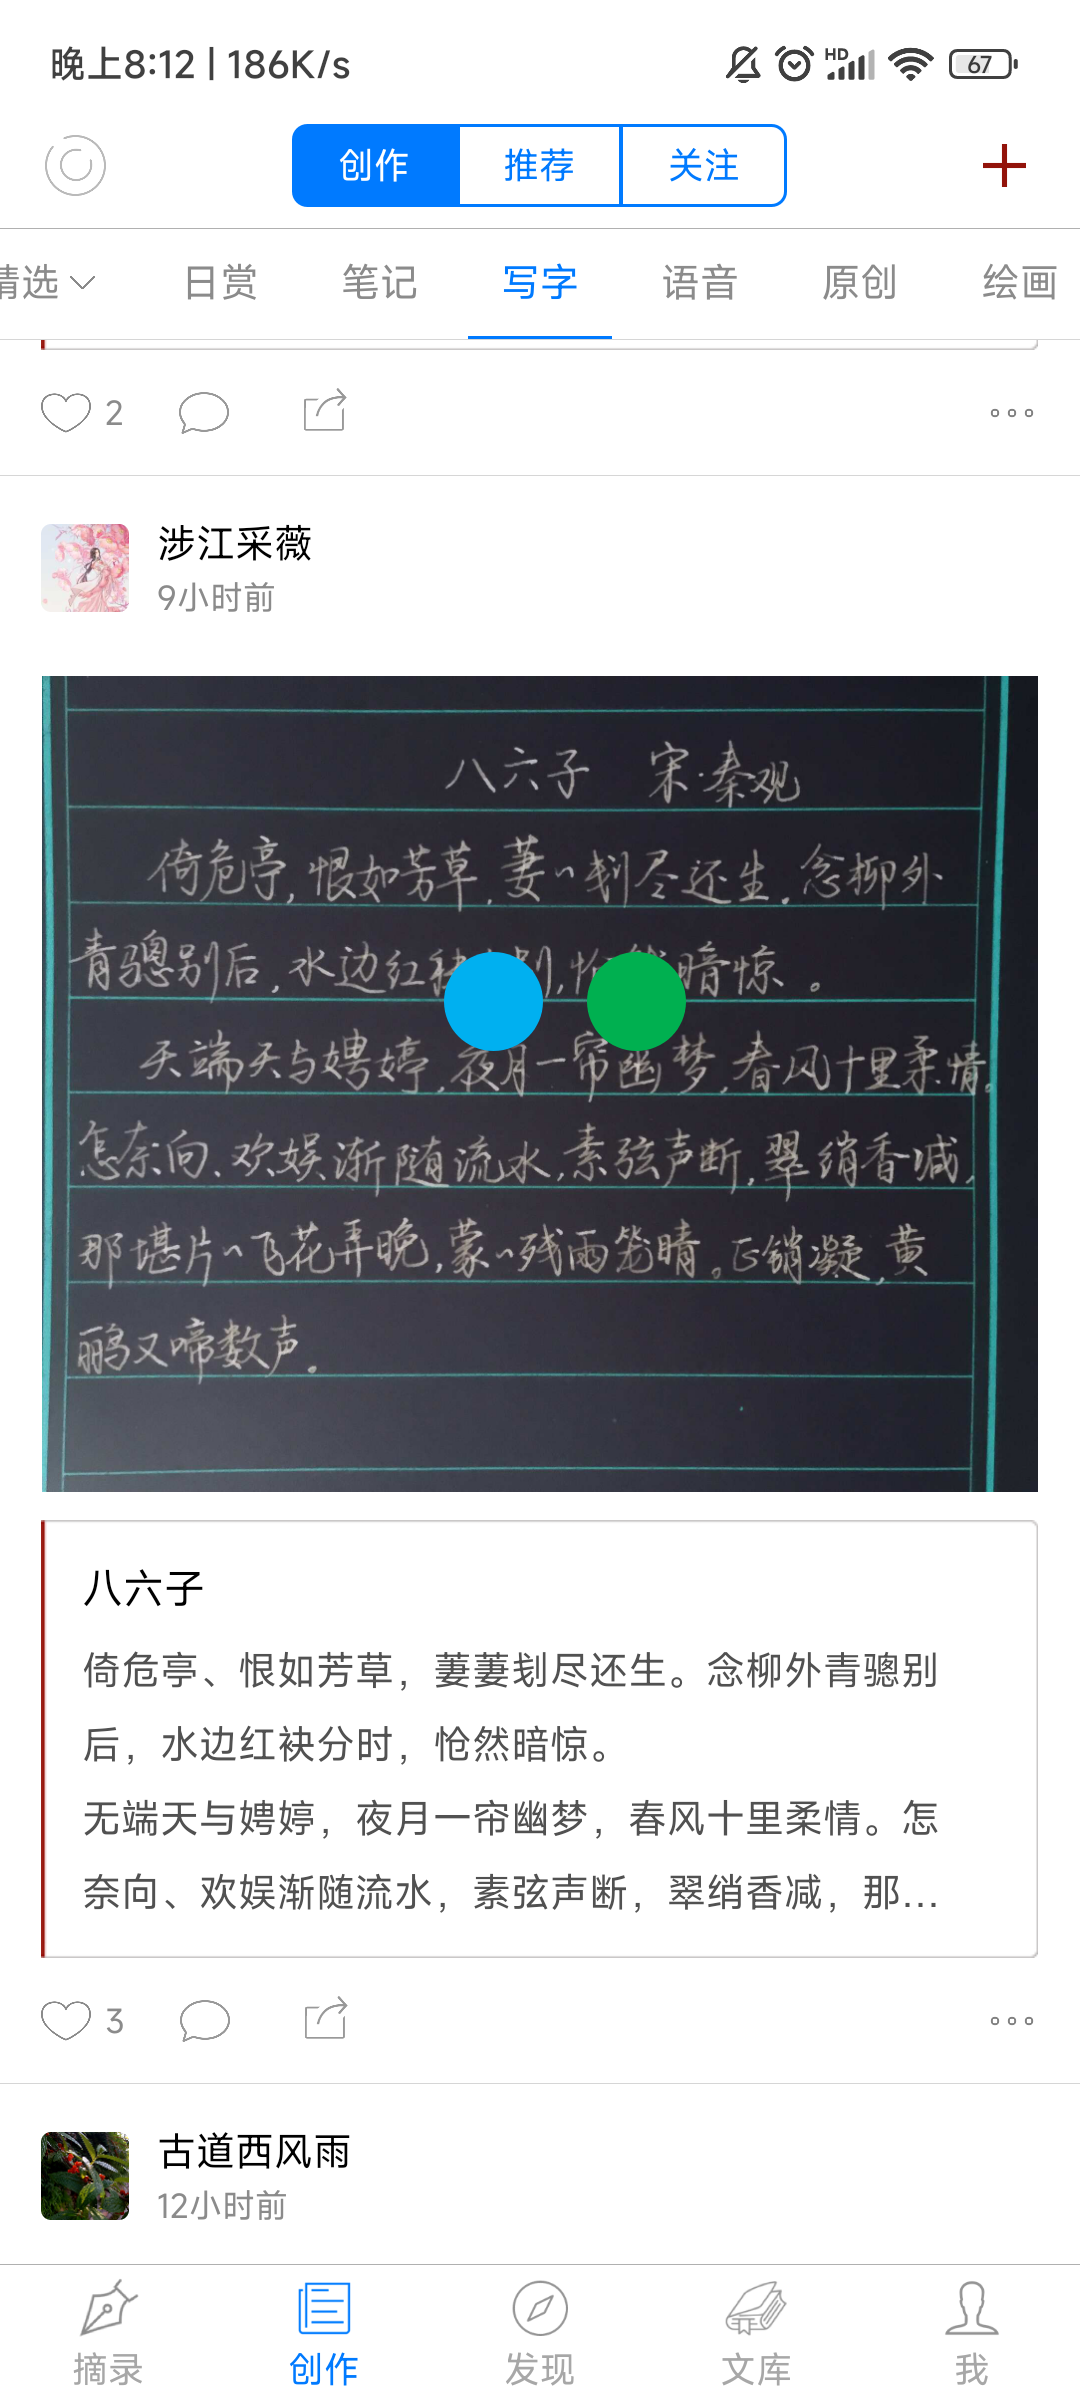 晚上8:12 | 186K/s
HD
67
创作 推荐 关注
精选 日赏 笔记 写字 语音 原创 绘画
2
涉江采薇
9小时前
八六子 宋·秦观
倚危亭,恨如芳草,萋〃刬尽还生。念柳外
青骢别后,水边红袂 别, 暗惊。
无端天与娉婷,夜月一帘幽梦,春风十里柔情。
怎奈向、欢娱渐随流水,素弦声断,翠绡香减,
那堪片〃飞花弄晚,蒙〃残雨笼晴。正销凝,黄
鹂又啼数声。
八六子
倚危亭、恨如芳草，萋萋刬尽还生。念柳外青骢别
后，水边红袂分时，怆然暗惊。
无端天与娉婷，夜月一帘幽梦，春风十里柔情。怎
奈向、欢娱渐随流水，素弦声断，翠绡香减，那...
3
古道西风雨
12小时前
摘录 创作 发现 文库 我